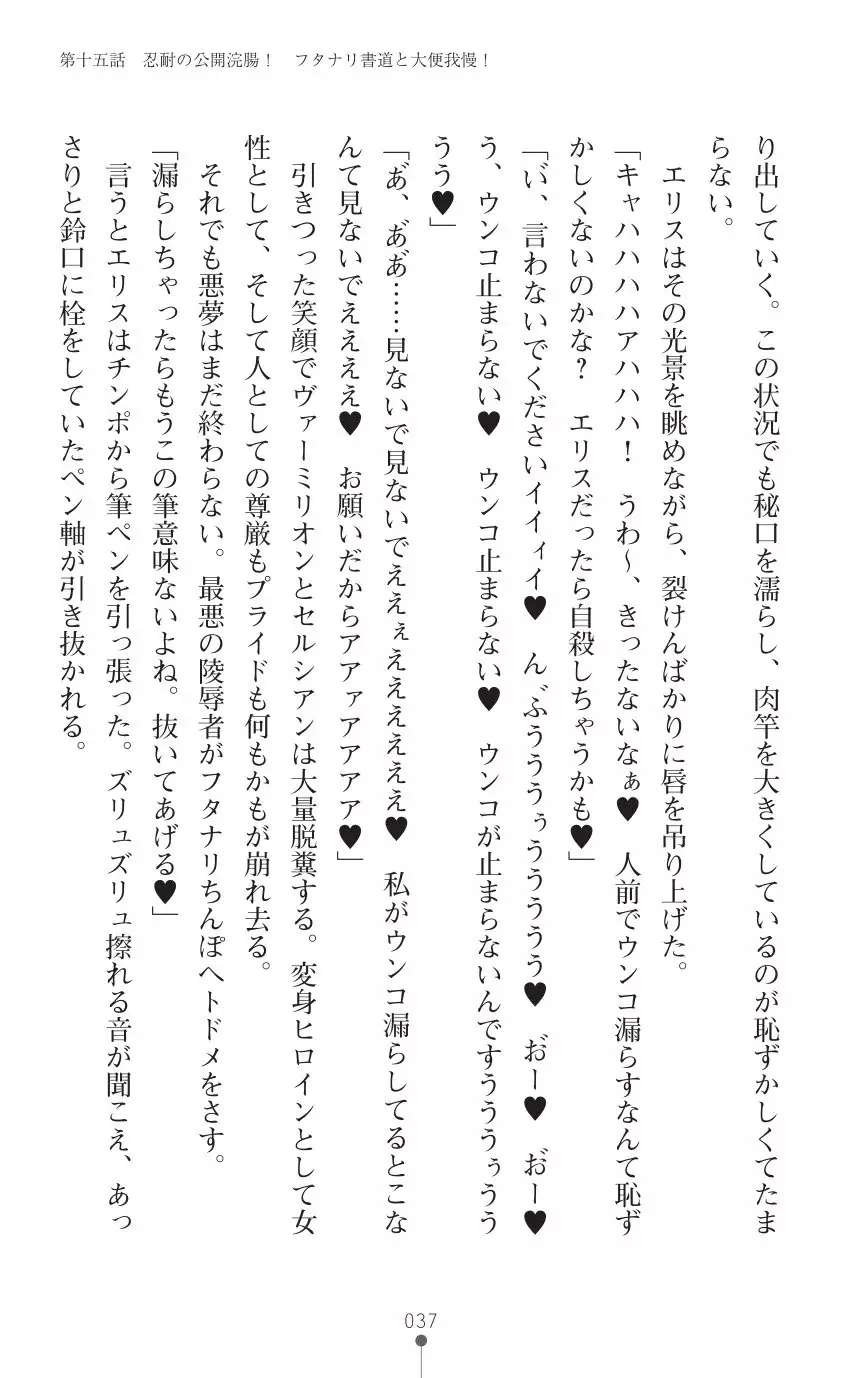 第十五話　忍耐の公開浣腸！　フタナリ書道と大便我慢！
り出していく。この状況でも秘口を濡らし、肉竿を大きくしているのが恥ずかしくてたま
らない。
　エリスはその光景を眺めながら、裂けんばかりに唇を吊り上げた。
「キャハハハハアハハハ！　うわ～、きったないなぁ♥　人前でウンコ漏らすなんて恥ず
かしくないのかな？　エリスだったら自殺しちゃうかも♥」
「い゛、言わないでくださいイイィイ♥　ん゛ぶうううぅううううう♥　お゛ー♥　お゛ー♥
う、ウンコ止まらない♥　ウンコ止まらない♥　ウンコが止まらないんですうううぅうう
うう♥」
「あ゛、あ゛あ゛……見ないで見ないでええぇええええええ♥　私がウンコ漏らしてるとこな
んて見ないでえええええ♥　お願いだからアアァアアアア♥」
　引きつった笑顔でヴァーミリオンとセルシアンは大量脱糞する。変身ヒロインとして女
性として、そして人としての尊厳もプライドも何もかもが崩れ去る。
　それでも悪夢はまだ終わらない。最悪の陵辱者がフタナリちんぽへトドメをさす。
「漏らしちゃったらもうこの筆意味ないよね。抜いてあげる♥」
　言うとエリスはチンポから筆ペンを引っ張った。ズリュズリュ擦れる音が聞こえ、あっ
さりと鈴口に栓をしていたペン軸が引き抜かれる。
037